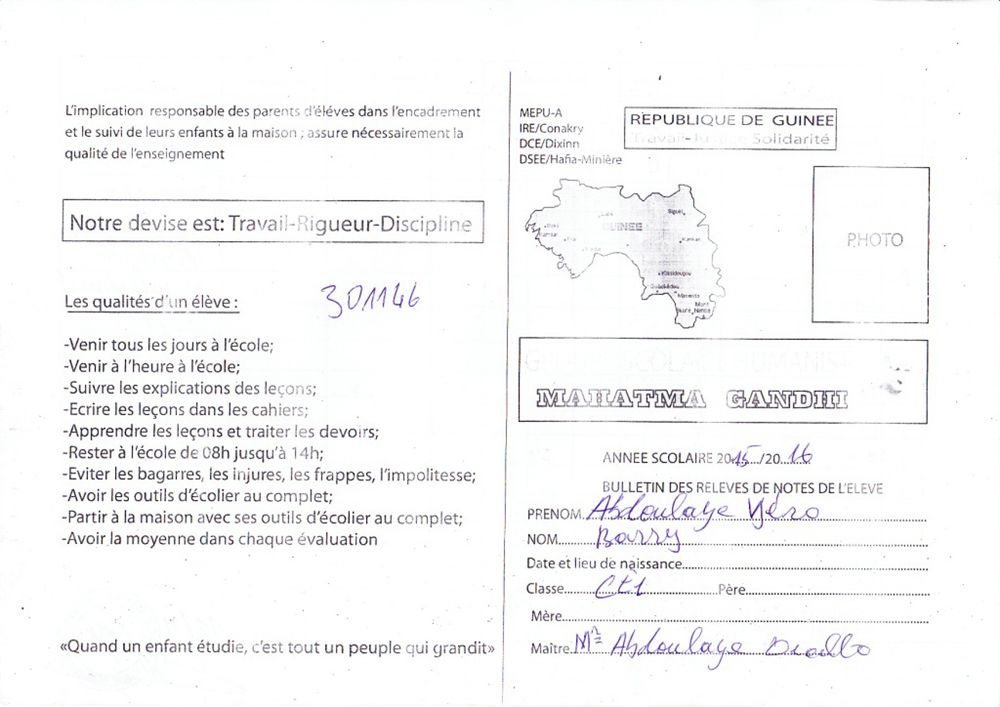 L'implication responsable des parents d'éléves dans l'encadrement
et le suivi de leurs enfants à la maison ; assure nécessairement la
qualité de l'enseignement
Notre devise est: Travail-Rigueur-Discipline
Les qualités d'un élève :
301146
-Venir tous les jours à l'école;
-Venir à l'heure à l'école;
-Suivre les explications des leçons;
-Ecrire les leçons dans les cahiers;
-Apprendre les leçons et traiter les devoirs;
-Rester à l'école de 08h jusqu'à 14h;
-Eviter les bagarres, les injures, les frappes, l'impolitesse;
-Avoir les outils d'écolier au complet;
-Partir à la maison avec ses outils d'écolier au complet;
-Avoir la moyenne dans chaque évaluation
«Quand un enfant étudie, c'est tout un peuple qui grandit»
MEPU-A
IRE/Conakry
DCE/Dixinn
DSEE/Hafia-Minière
REPUBLIQUE DE GUINEE
Travail-Justice Solidarité
GUINEE
Siguiri
Kankan
Kissidougou
Guéckédou
Macenta
PHOTO
MAHATMA GANDHI
ANNEE SCOLAIRE 2015/2016
BULLETIN DES RELEVES DE NOTES DE L'ELEVE
PRENOM Abdoulaye Yéro
NOM Barry
Date et lieu de naissance
Classe CE1 Père
Mère
Maître Mr Abdoulaye Diallo